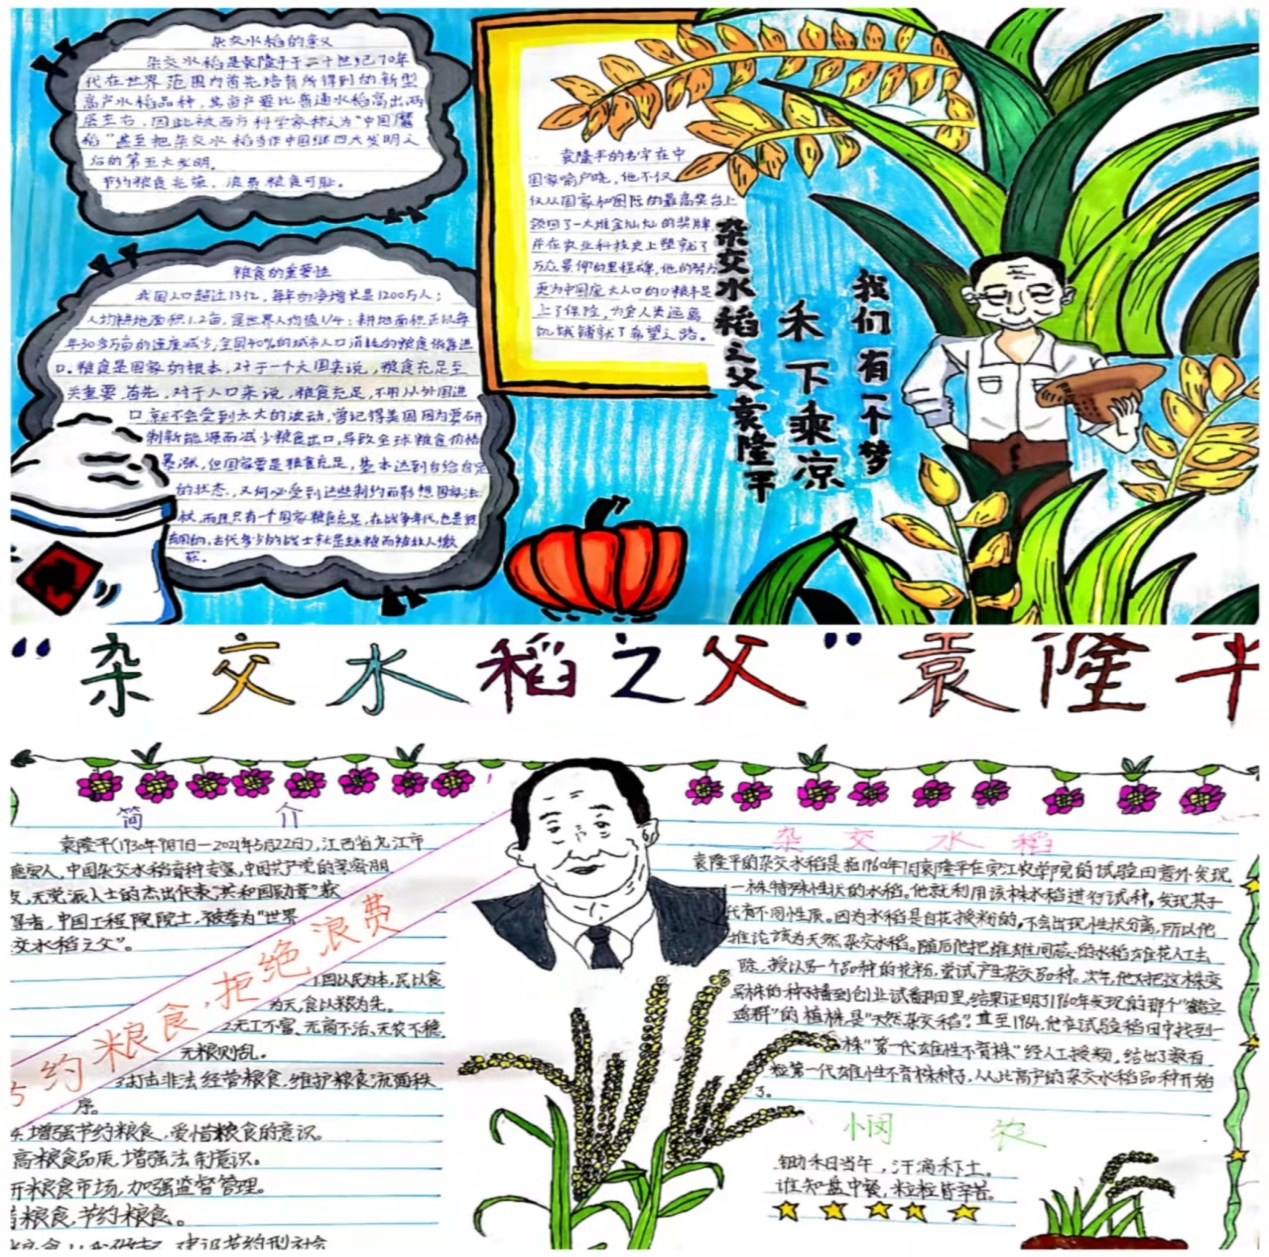 杂交水稻的意义
杂交水稻是袁隆平于二十世纪70年
代在世界范围内首先培育所得到的新型
高产水稻品种，其亩产量比普通水稻高出两
层左右，因此被西方科学家称之为"中国魔
稻"甚至把杂交水稻当作中国继四大发明之
后的第五大发明。
节约粮食光荣，浪费粮食可耻。
粮食的重要性
我国人口超过13亿，每年的净增长是1200万人；
人均耕地面积1.2亩，是世界人均值1/4；耕地面积正以每
年30多万亩的速度减少，全国40%的城市人口消耗的粮食依靠进
口。粮食是国家的根本，对于一个大国来说，粮食充足至
关重要。首先，对于人口来说，粮食充足，不用从外国进
口就不会受到太大的波动，曾记得美国因为要研
制新能源而减少粮食出口，导致全球粮食价格
暴涨，但国家要是粮食充足，基本达到自给自足
的状态，又何必受到这些制约而影想国家法
权，而且只有一个国家粮食充足，在战争年代，也是很
有用的，古代多少的战士就是缺粮而被敌人缴
获。
袁隆平的名字在中
国家喻户晓，他不仅
仅从国家和国际的最高奖台上
领回了一大堆金灿灿的奖牌
并在农业科技史上塑就了
万众景仰的里程碑，他的努力
更为中国庞大人口的口粮本足
上了保险，为全人类远离
饥饿铺就了希望之路。
杂交水稻之父袁隆平
禾下乘凉
我们有一个梦
"杂交水稻之父"袁隆平
简 介
袁隆平(1930年9月7日—2021年5月22日)，江西省九江市
德安人，中国杂交水稻育种专家，中国共产党的亲密朋
友，无党派人士的杰出代表，"共和国勋章"获
得者，中国工程院院士，被誉为"世界
交水稻之父"。
节约粮食，拒绝浪费
1.国以民为本，民以食
为天，食以粮为先。
2.无工不富、无商不活、无农不稳
无粮则乱。
3.打击非法经营粮食，维护粮食流通秩
序。
4.增强节约粮食，爱惜粮食的意识。
高粮食品质，增强法制意识。
开粮食市场，加强监督管理。
粮食，节约粮食。
建设节约型社会
杂交水稻
袁隆平的杂交水稻是指1960年7月袁隆平在安江农学院的试验田意外发现
一株特殊性状的水稻。他就利用该株水稻进行试种，发现其子
代有不同性质。因为水稻是自花授粉的，不会出现性状分离，所以他
推论该为天然杂交水稻。随后他把雌雄同蕊的水稻雄花人工去
除，授以另一个品种的花粉，尝试产生杂交品种。次年，他又把这株变
异株的种子播到创业试验田里，结果证明了1960年发现的那个"鹤立
鸡群"的植株，是"天然杂交稻"。直至1964，他在试验稻田中找到一
株"第一代雄性不育株"经人工授粉，结出了数百
粒第一代雄性不育株种子，从此高产的杂交水稻品种开始
了。
悯 农
锄禾日当午，汗滴禾下土。
谁知盘中餐，粒粒皆辛苦。